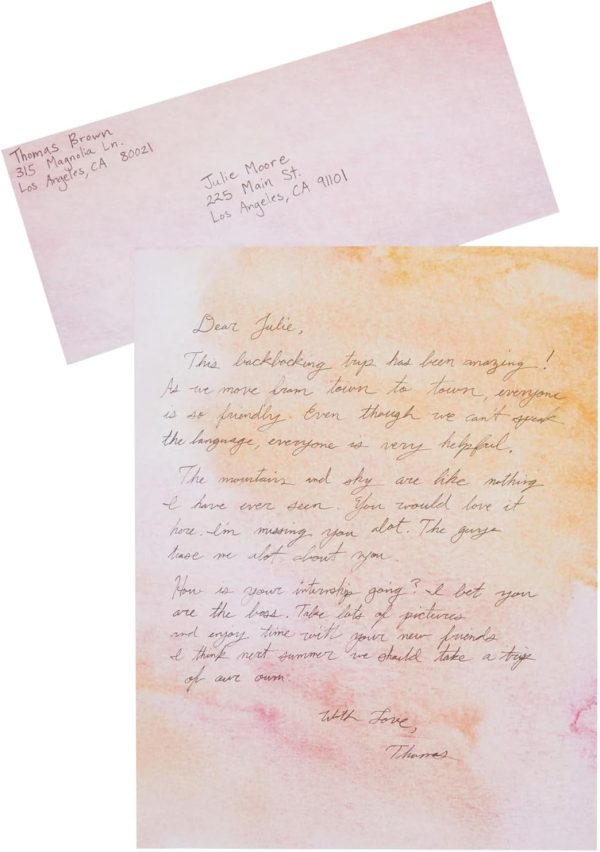 Thomas Brown
315 Magnolia Ln.
Los Angeles, CA 80021
Julie Moore
225 Main St.
Los Angeles, CA 91101
Dear Julie,
This backbacking trip has been amazing!
As we move from town to town, everyone
is so friendly. Even though we can't speak
the language, everyone is very helpful.
The mountains and sky are like nothing
I have ever seen. You would love it
here. I'm missing you alot. The guys
tease me alot about you.
How is your internship going? I bet you
are the boss. Take lots of pictures
and enjoy time with your new friends
I think next summer we should take a trip
of our own.
With Love,
Thomas